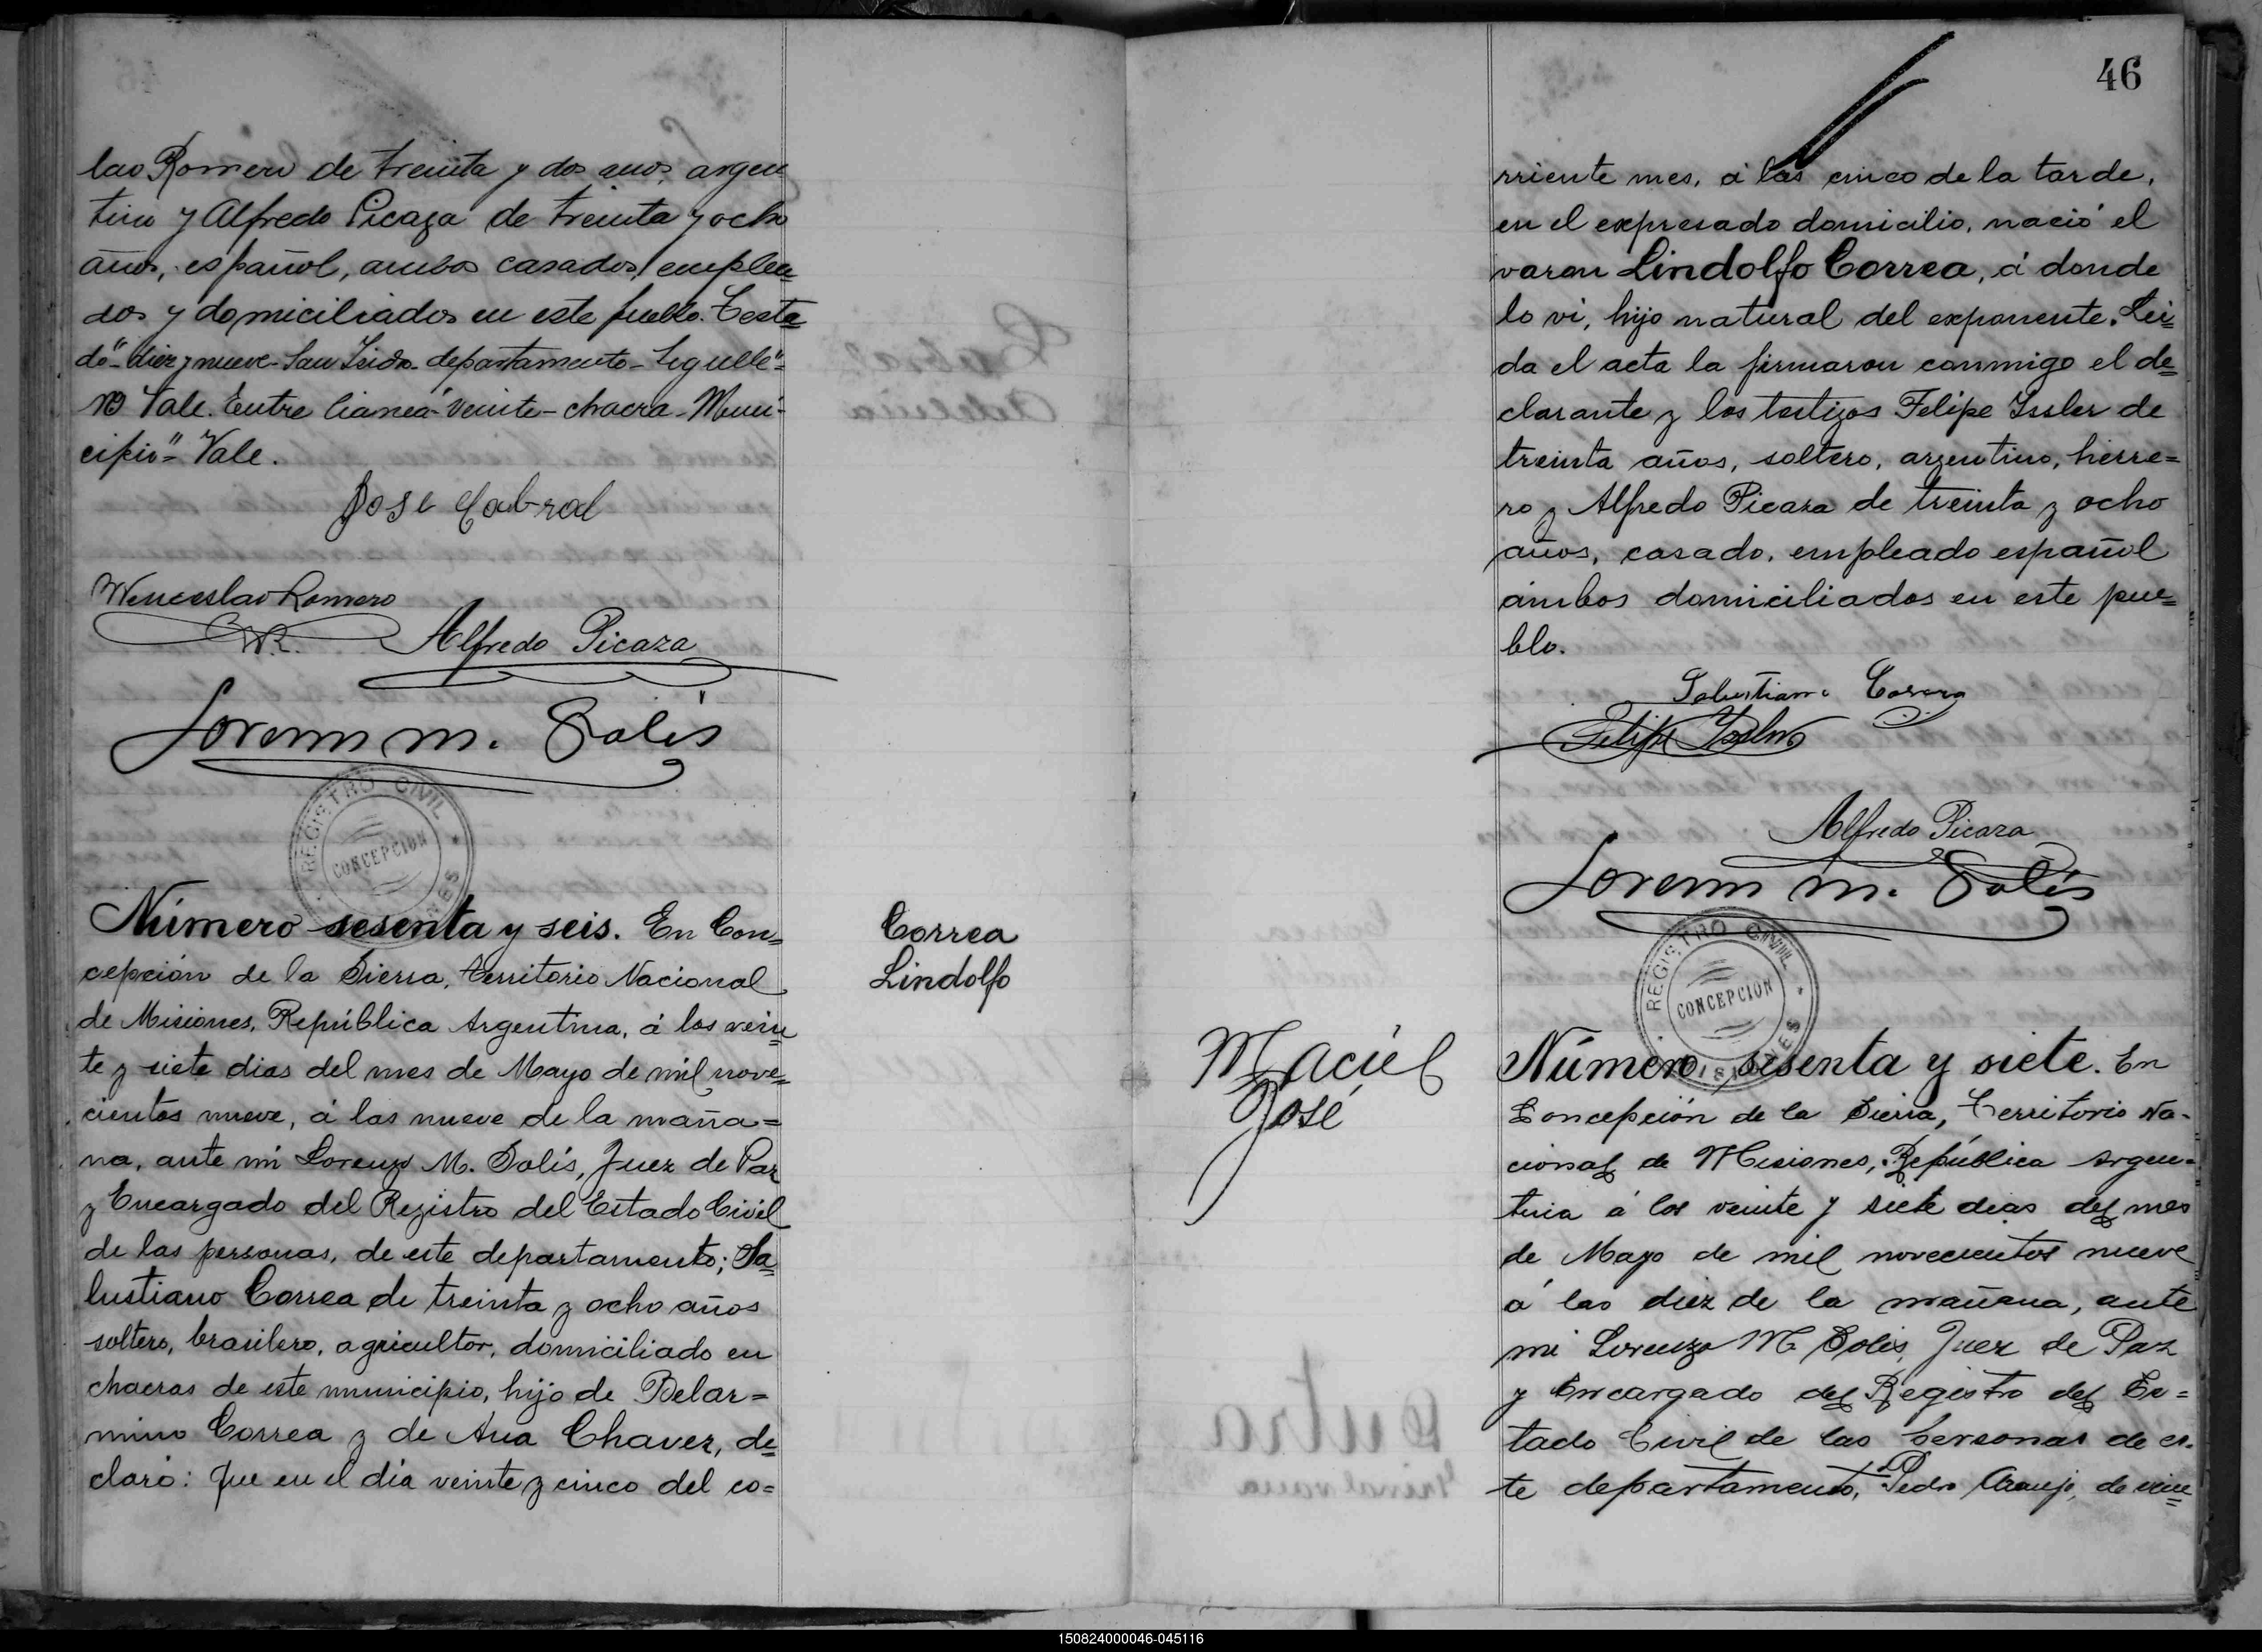 lao Romero de treinta y dos anos, argen
tino y Alfredo Picaza de treinta y ocho
años, español, ambos casados, emplea
dos y domiciliados en este pueblo. Testa
do "diez y nueve - San Isidro - departamento -
No Vale. Entre lineas - veinte - chacra - Muni-
cipio" Vale.
Jose Cabral
Wenceslao Romero
W.R.
Alfredo Picaza
Lorenzo M. Solis
REGISTRO CIVIL
CONCEPCION
Número sesenta y seis. En Con=
cepción de la Sierra, territorio Nacional
de Misiones, República Argentina, á los vein
te y siete dias del mes de Mayo de mil nove=
cientos nueve, á las nueve de la maña=
na, ante mi Lorenzo M. Solis, Juez de Paz
y Encargado del Registro del Estado Civil
de las personas, de este departamento; Sa
lustiano Correa de treinta y ocho años
soltero, brasilero, agricultor, domiciliado en
chacras de este municipio, hijo de Belar=
mino Correa y de Ana Chavez, de
claró: Que en el día veinte y cinco del co=
Correa
Lindolfo
46
rriente mes, á las cinco de la tarde,
en el expresado domicilio, nació el
varon Lindolfo Correa, á donde
lo vi, hijo natural del exponente. Lei
da el acta la firmaron conmigo el de
clarante y los testigos Felipe Issler de
treinta años, soltero, argentino, herre=
ro y Alfredo Picaza de treinta y ocho
años, casado, empleado español
ámbos domiciliados en este pue
blo.
Salustiano Correa
Felipe Issler
Alfredo Picaza
Lorenzo M. Solis
REGISTRO CIVIL
CONCEPCION
MISIONES
Maciel
José
Número sesenta y siete. En
Concepción de la Sierra, Territorio Na-
cional de Misiones, República Argen-
tina á los veinte y siete dias del mes
de Mayo de mil novecientos nueve
á las diez de la mañana, ante
mi Lorenzo M Solis, Juez de Paz
y Encargado del Registro del Es=
tado Civil de las personas de es-
te departamento, Pedro Araujo, de vein
150824000046-045116